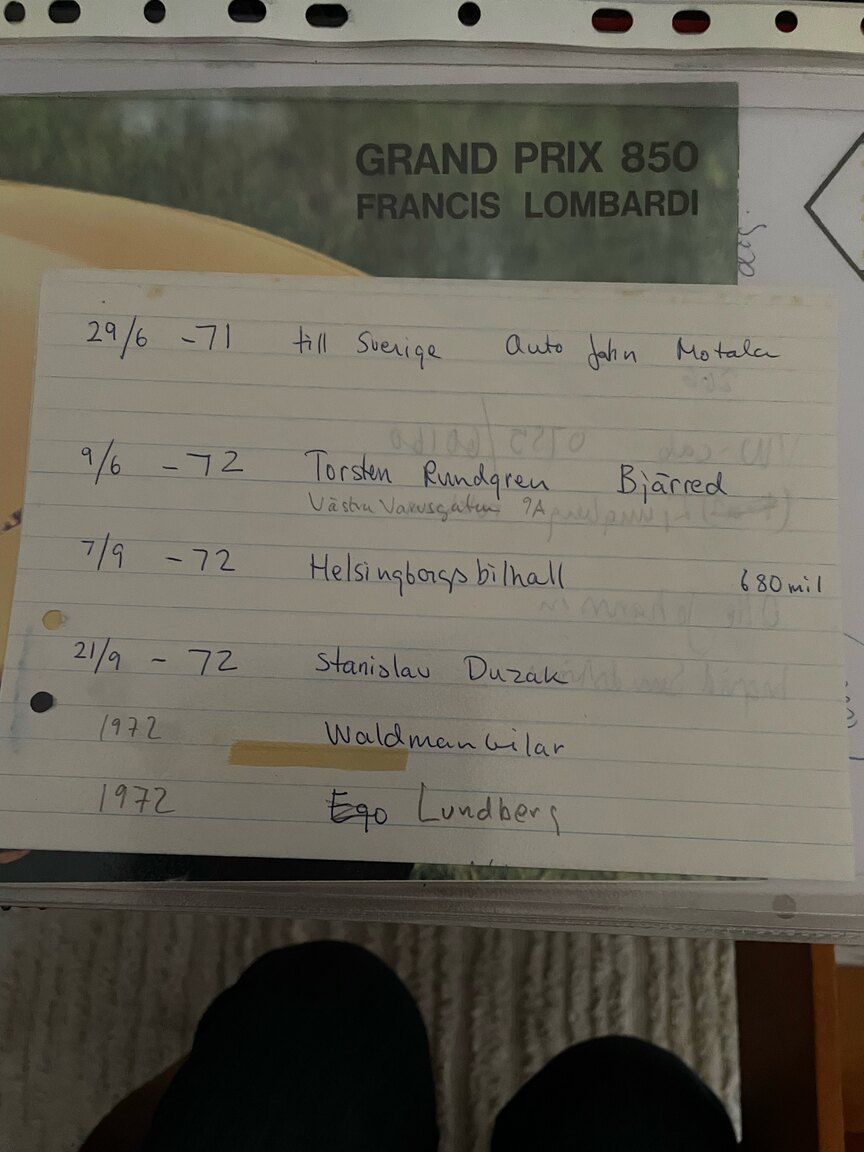 GRAND PRIX 850
FRANCIS LOMBARDI
29/6 -71 till Sverige Auto John Motala
9/6 -72 Torsten Rundgren Bjärred
Västra 9A
7/9 -72 Helsingborgs bilhall 680 mil
21/9 - 72 Stanislav Duzak
1972 Waldman bilar
1972 Lundberg